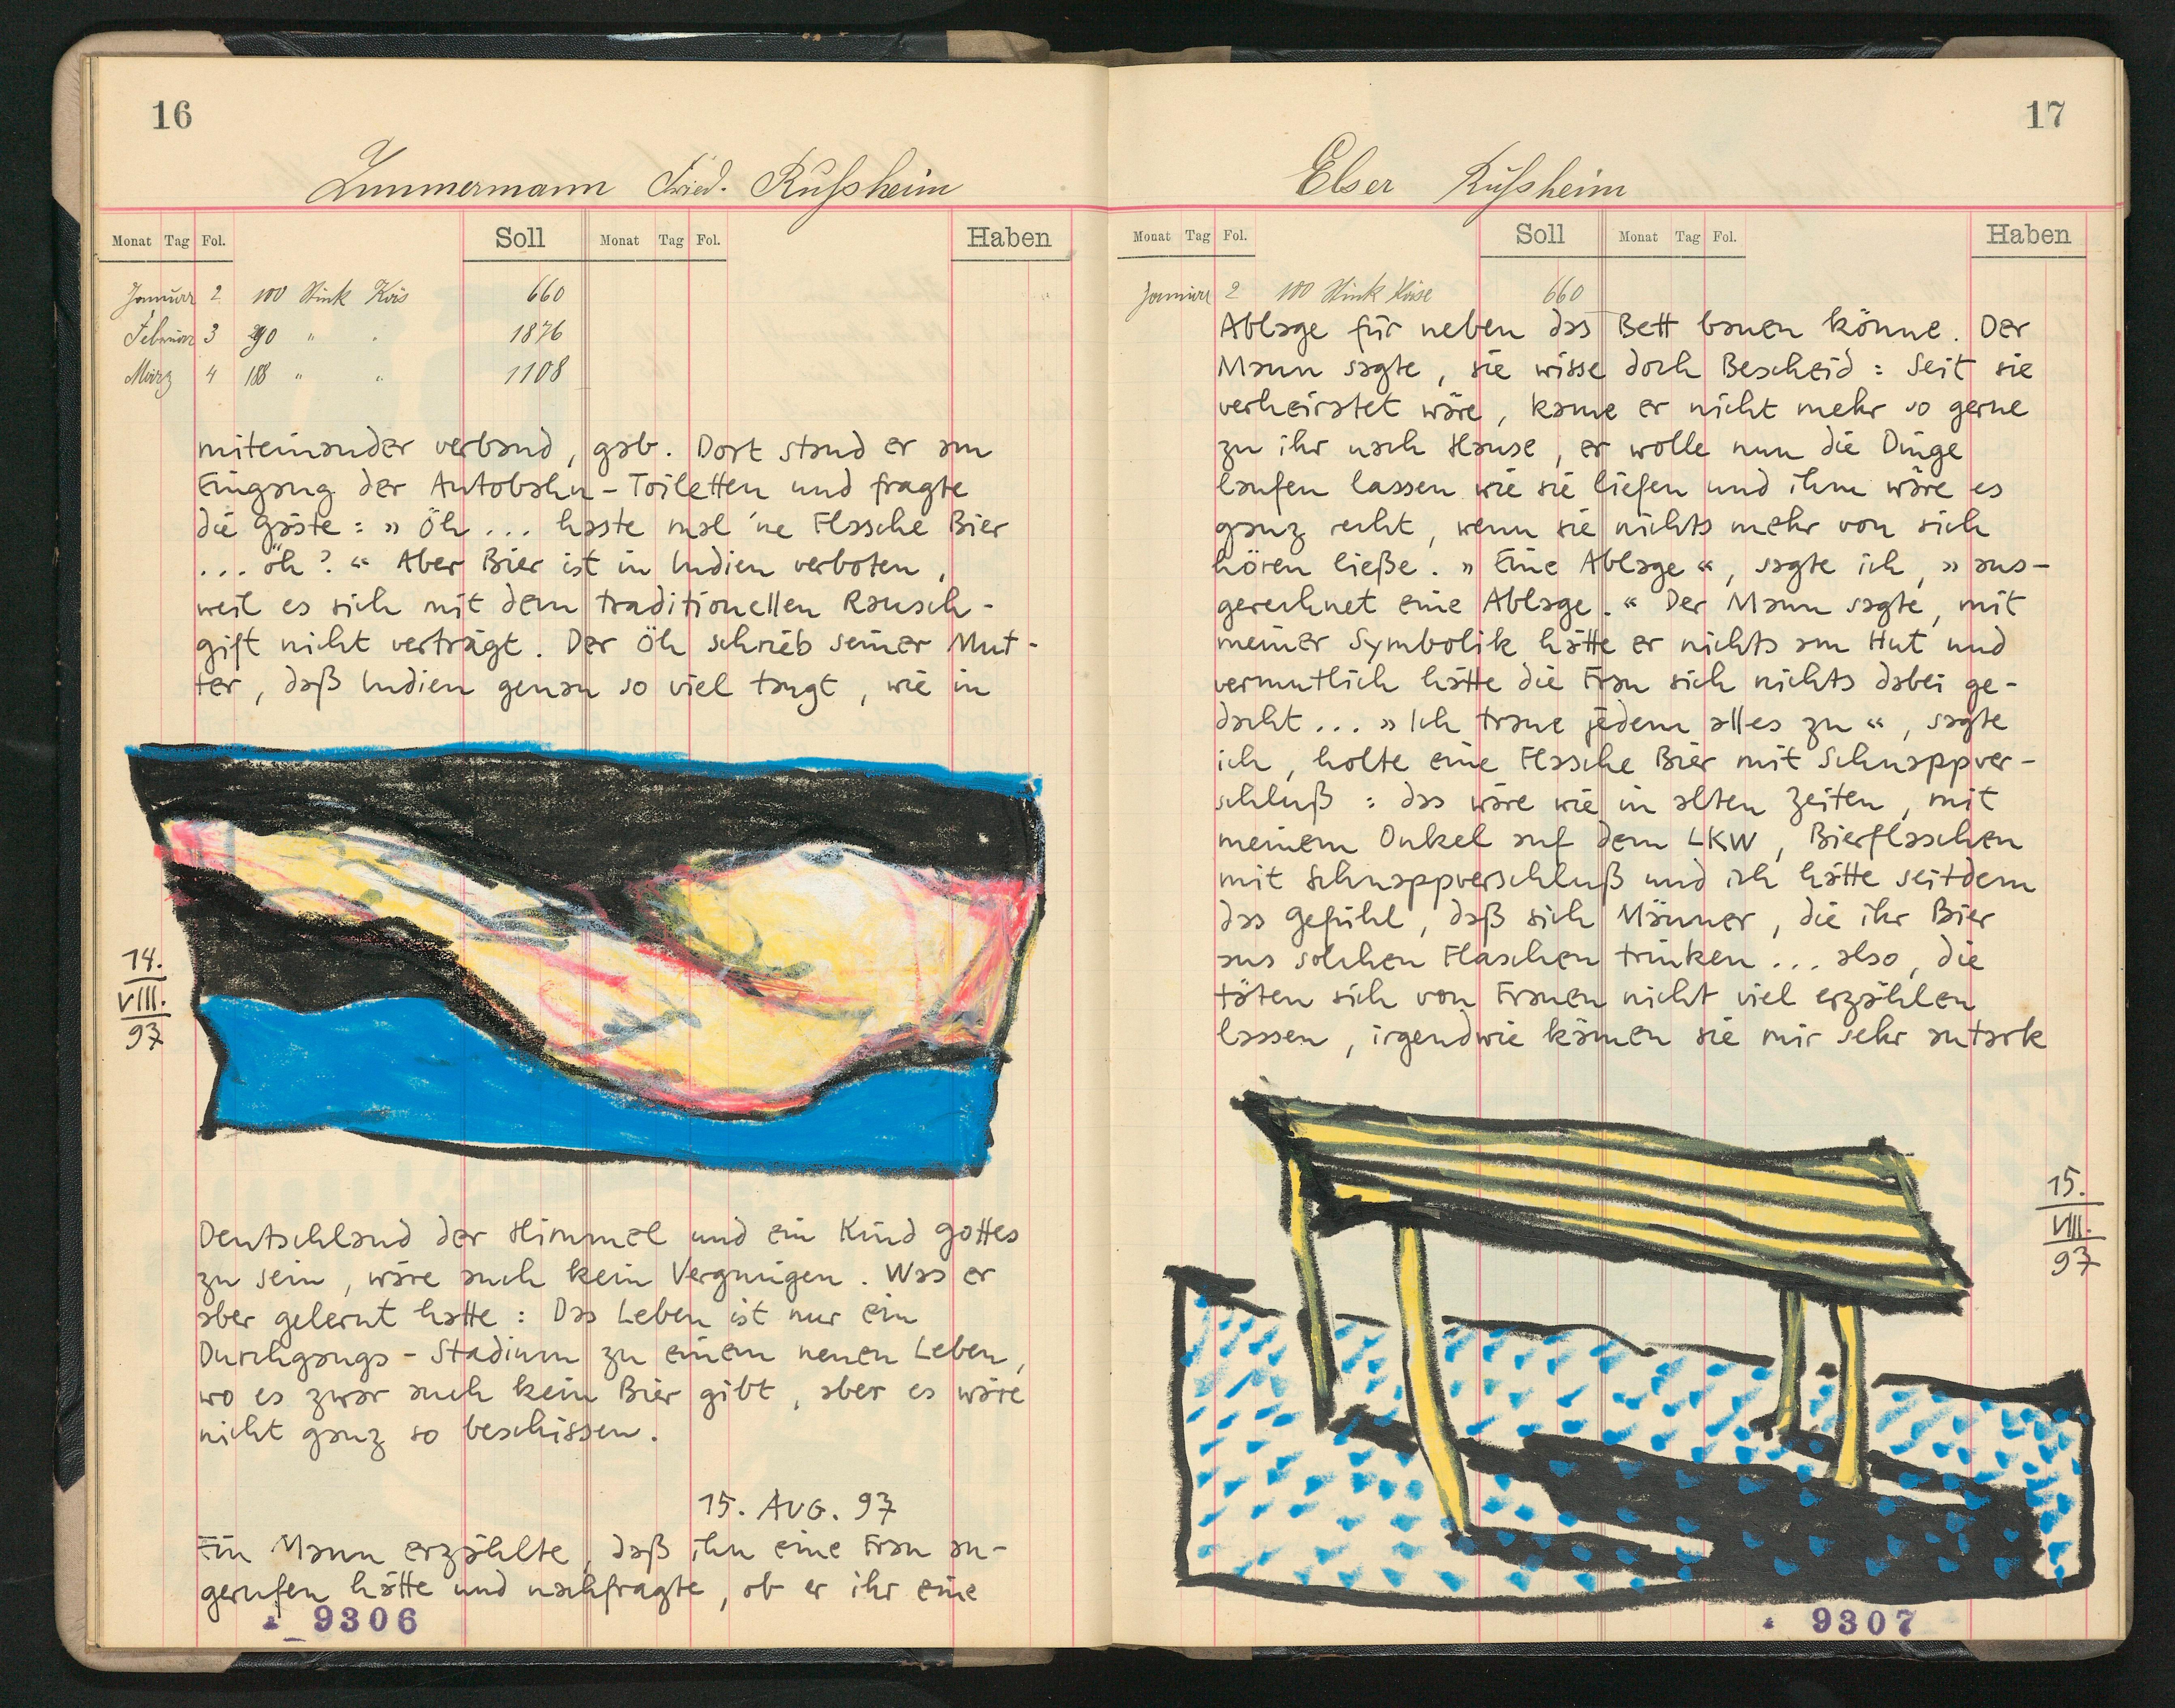 16
Zimmermann Fried. Rußheim
Monat Tag Fol. Soll Monat Tag Fol. Haben
Januar 2 100 Stück Käs 660
Februar 3 290 " " 1876
März 4 188 " " 1108
miteinander verband, gab. Dort stand er am
Eingang der Autobahn-Toiletten und fragte
die Gäste: » Öh ... haste mal 'ne Flasche Bier
... öh? « Aber Bier ist in Indien verboten,
weil es sich mit dem traditionellen Rausch-
gift nicht verträgt. Der Öh schrieb seiner Mut-
ter, daß Indien genau so viel taugt, wie in
14.
VIII.
97
Deutschland der Himmel und ein Kind Gottes
zu sein, wäre auch kein Vergnügen. Was er
aber gelernt hatte: Das Leben ist nur ein
Durchgangs-Stadium zu einem neuen Leben,
wo es zwar auch kein Bier gibt, aber es wäre
nicht ganz so beschissen.
15. AUG. 97
Ein Mann erzählte, daß ihn eine Frau an-
gerufen hätte und nachfragte, ob er ihr eine
9306
17
Elser Rußheim
Monat Tag Fol. Soll Monat Tag Fol. Haben
Januar 2 100 Stück Käse 660
Ablage für neben das Bett bauen könne. Der
Mann sagte, sie wisse doch Bescheid: Seit sie
verheiratet wäre, käme er nicht mehr so gerne
zu ihr nach Hause, er wolle nun die Dinge
laufen lassen wie sie liefen und ihm wäre es
ganz recht, wenn sie nichts mehr von sich
hören ließe. » Eine Ablage «, sagte ich, » aus-
gerechnet eine Ablage. « Der Mann sagte, mit
meiner Symbolik hätte er nichts am Hut und
vermutlich hätte die Frau sich nichts dabei ge-
dacht ... » Ich traue jedem alles zu «, sagte
ich, holte eine Flasche Bier mit Schnappver-
schluß: das wäre wie in alten Zeiten, mit
meinem Onkel auf dem LKW, Bierflaschen
mit Schnappverschluß und ich hätte seitdem
das Gefühl, daß sich Männer, die ihr Bier
aus solchen Flaschen trinken ... also, die
täten sich von Frauen nicht viel erzählen
lassen, irgendwie kämen sie mir sehr autark
15.
VIII.
97
9307